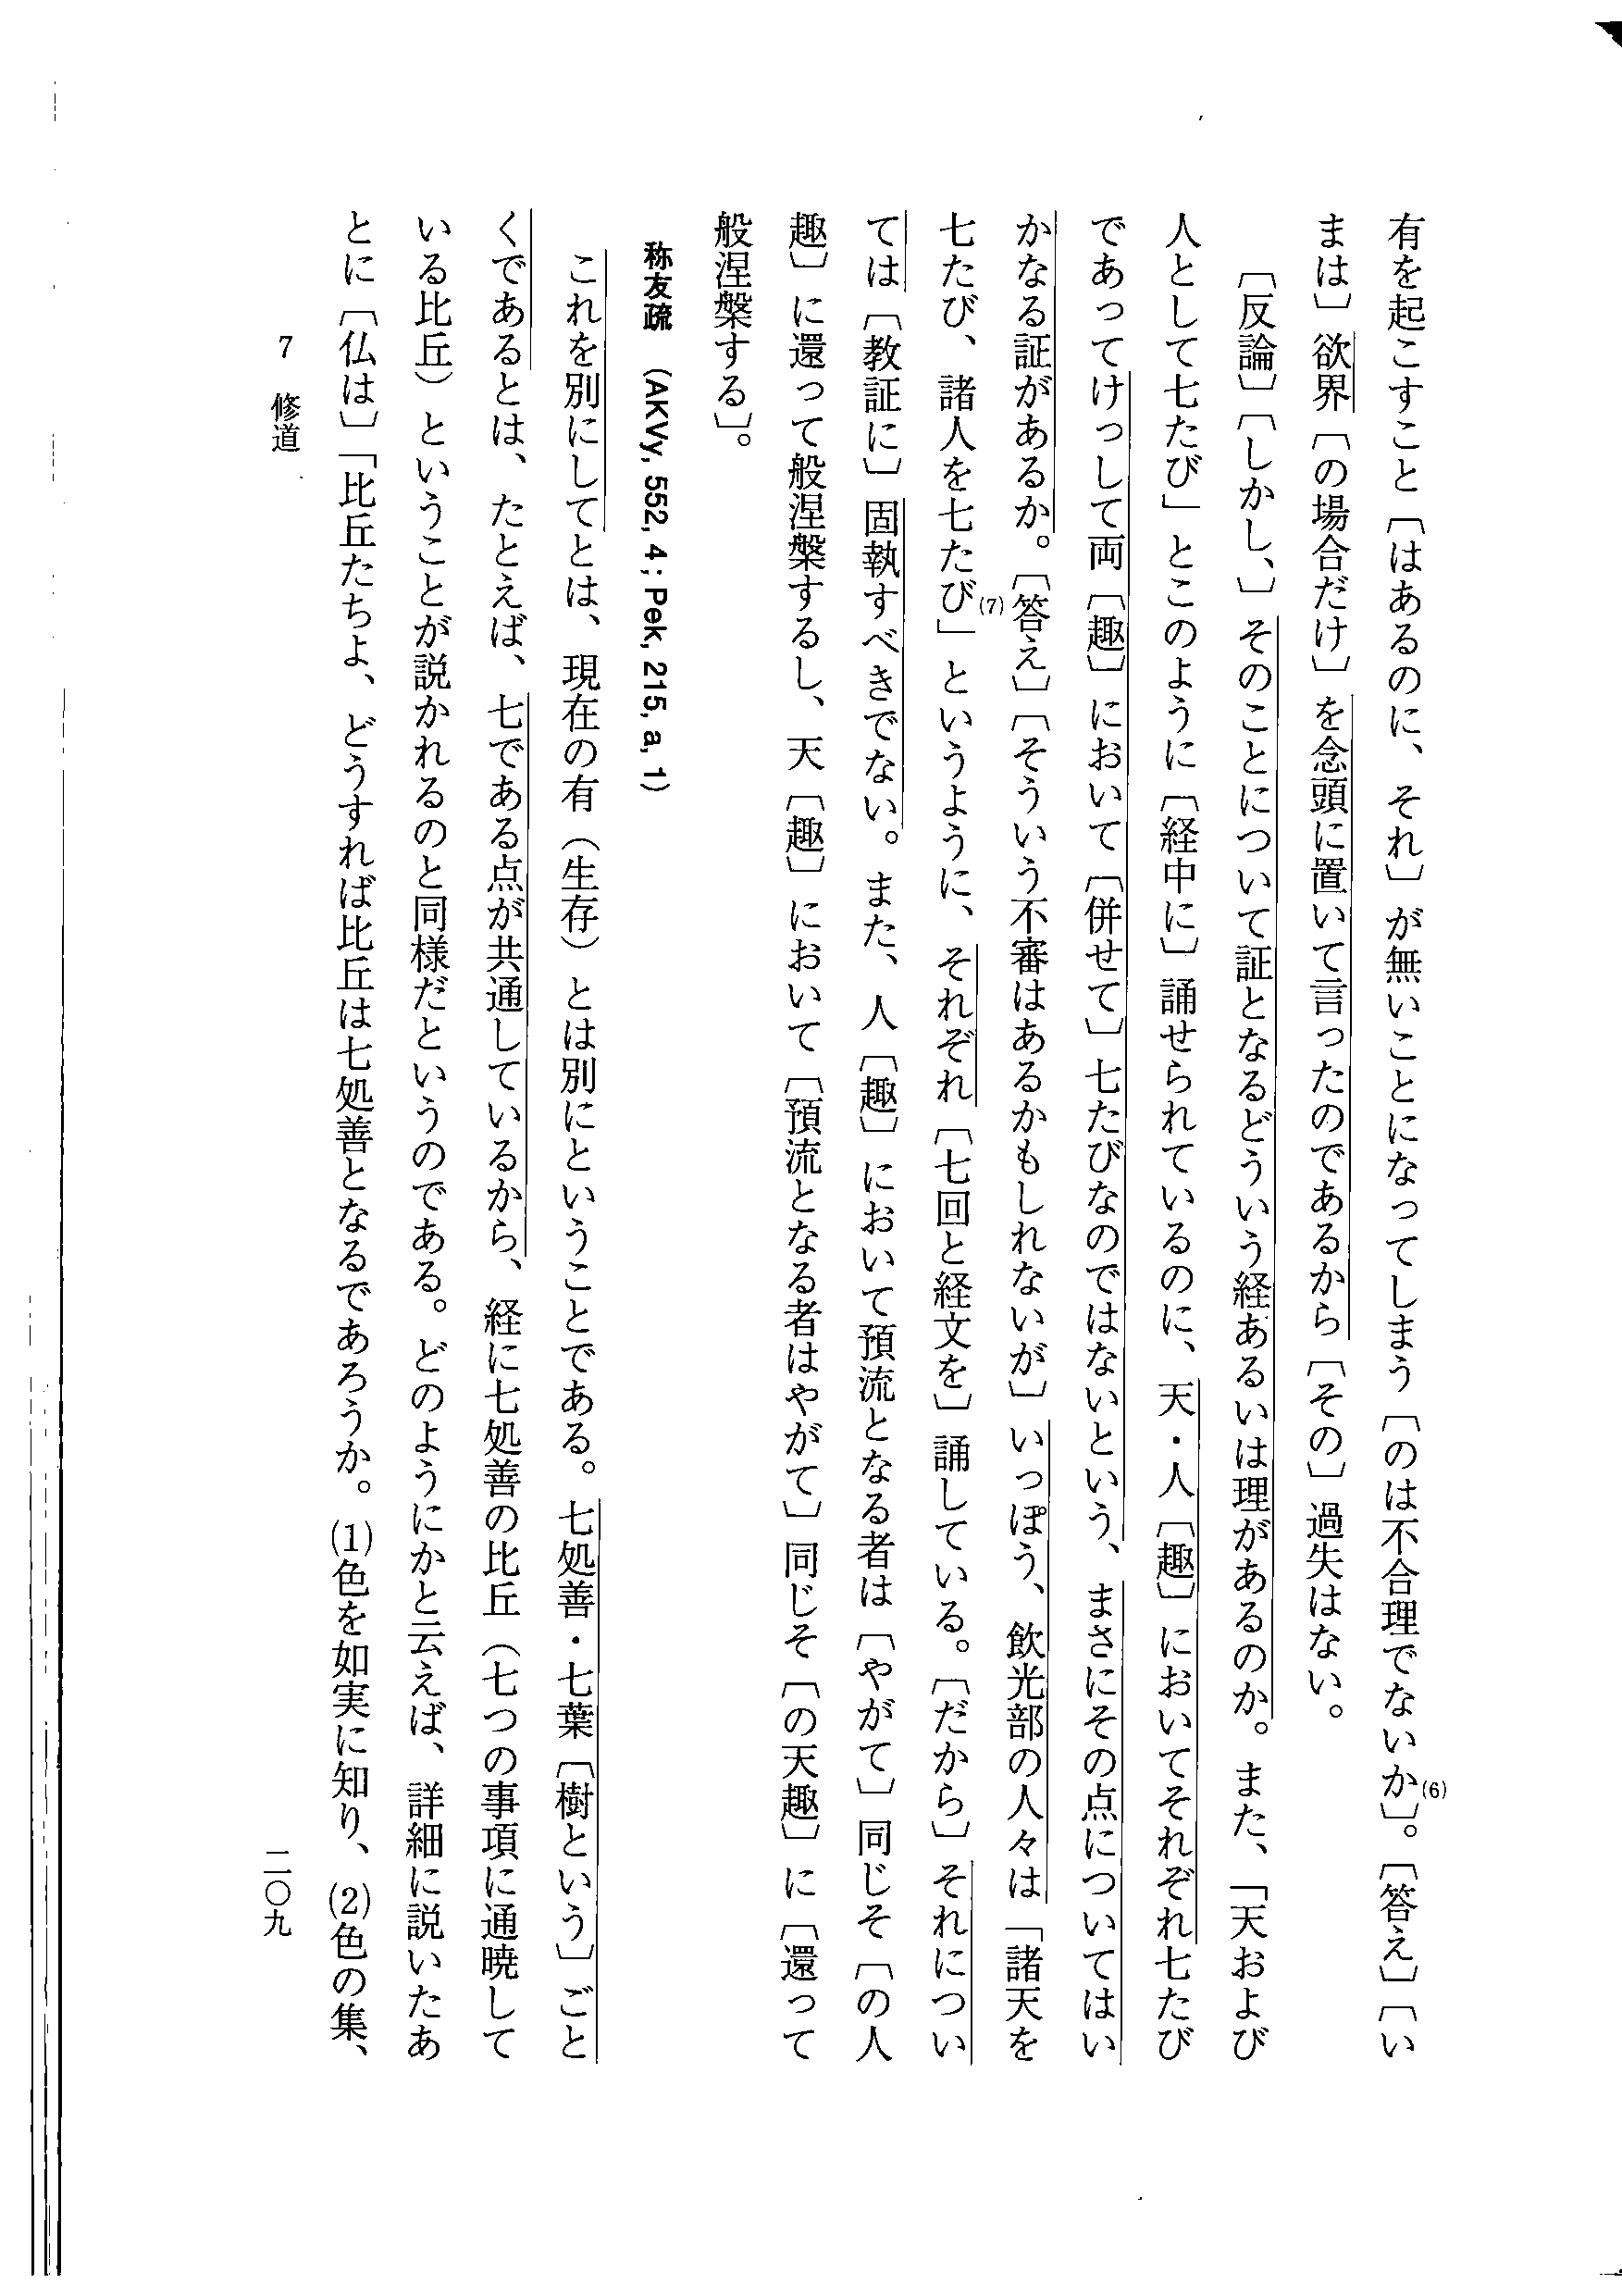 有を起こすこと〔はあるのに、それ〕が無いことになってしまう〔のは不合理でないか(6)〕。〔答え〕〔い
まは〕欲界〔の場合だけ〕を念頭に置いて言ったのであるから〔その〕過失はない。
〔反論〕〔しかし、〕そのことについて証となるどういう経あるいは理があるのか。また、「天および
人として七たび」とこのように〔経中に〕誦せられているのに、天・人〔趣〕においてそれぞれ七たび
であってけっして両〔趣〕において〔併せて〕七たびなのではないという、まさにその点についてはい
かなる証があるか。〔答え〕〔そういう不審はあるかもしれないが〕いっぽう、飲光部の人々は「諸天を
七たび、諸人を七たび(7)」というように、それぞれ〔七回と経文を〕誦している。〔だから〕それについ
ては〔教証に〕固執すべきでない。また、人〔趣〕において預流となる者は〔やがて〕同じそ〔の人
趣〕に還って般涅槃するし、天〔趣〕において〔預流となる者はやがて〕同じそ〔の天趣〕に〔還って
般涅槃する〕。
称友疏 (AKVy, 552, 4 ; Pek, 215, a, 1)
これを別にしてとは、現在の有（生存）とは別にということである。七処善・七葉〔樹という〕ごと
くであるとは、たとえば、七である点が共通しているから、経に七処善の比丘（七つの事項に通暁して
いる比丘）ということが説かれるのと同様だというのである。どのようにかと云えば、詳細に説いたあ
とに〔仏は〕「比丘たちよ、どうすれば比丘は七処善となるであろうか。(1)色を如実に知り、(2)色の集、
7 修道
二〇九